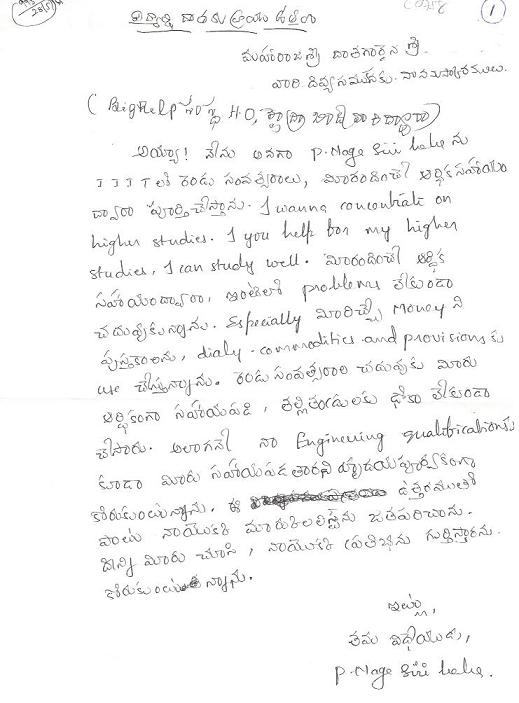 1
విద్యార్థి దాతకు వ్రాయు ఉత్తరం
మహారాజశ్రీ దాతగారైన శ్రీ
వారి దివ్యసముఖమునకు నా నమస్కారములు.
(Big Help సంస్థ H.O, ద్వారా
అయ్యా! నేను అనగా P. Naga Siri babu ను
IIIT లో రెండు సంవత్సరాలు, మీరందించే ఆర్థిక సహాయం
ద్వారా పూర్తిచేస్తాను. I wanna concentrate on
higher studies. I you help for my higher
studies, I can study well. మీరందించే ఆర్థిక
సహాయంద్వారా, ఇంతలో problems లేకుండా
చదువుకున్నాను. Especially మీరిచ్చే Money ని
పుస్తకాలను, dialy commodities and provisions కు
use చేస్తున్నాను. రెండు సంవత్సరాల చదువుకు మీరు
ఆర్థికంగా సహాయపడి, తల్లితండ్రులకు ధోకా లేకుండా
చేసారు. అలాగనే నా Engineering qualifications కు
కూడా మీరు సహాయపడతారని హృదయపూర్వకంగా
కోరుకుంటున్నాను. ఈ ఉత్తరముతో
పాటు నాయొక్క మార్కులలిస్ట్‌ను జతపరిచాను.
దీన్ని మీరు చూసి, నాయొక్క ప్రతిభను గుర్తిస్తారను.
కోరుకుంటున్నాను.
ఇట్లు,
తమ విధేయుడు,
P. Naga Siri babu.